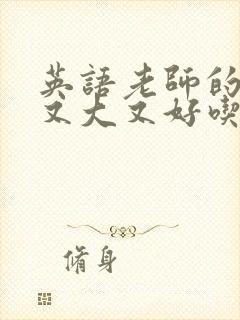 英語老師的
又大又好喫
脩身